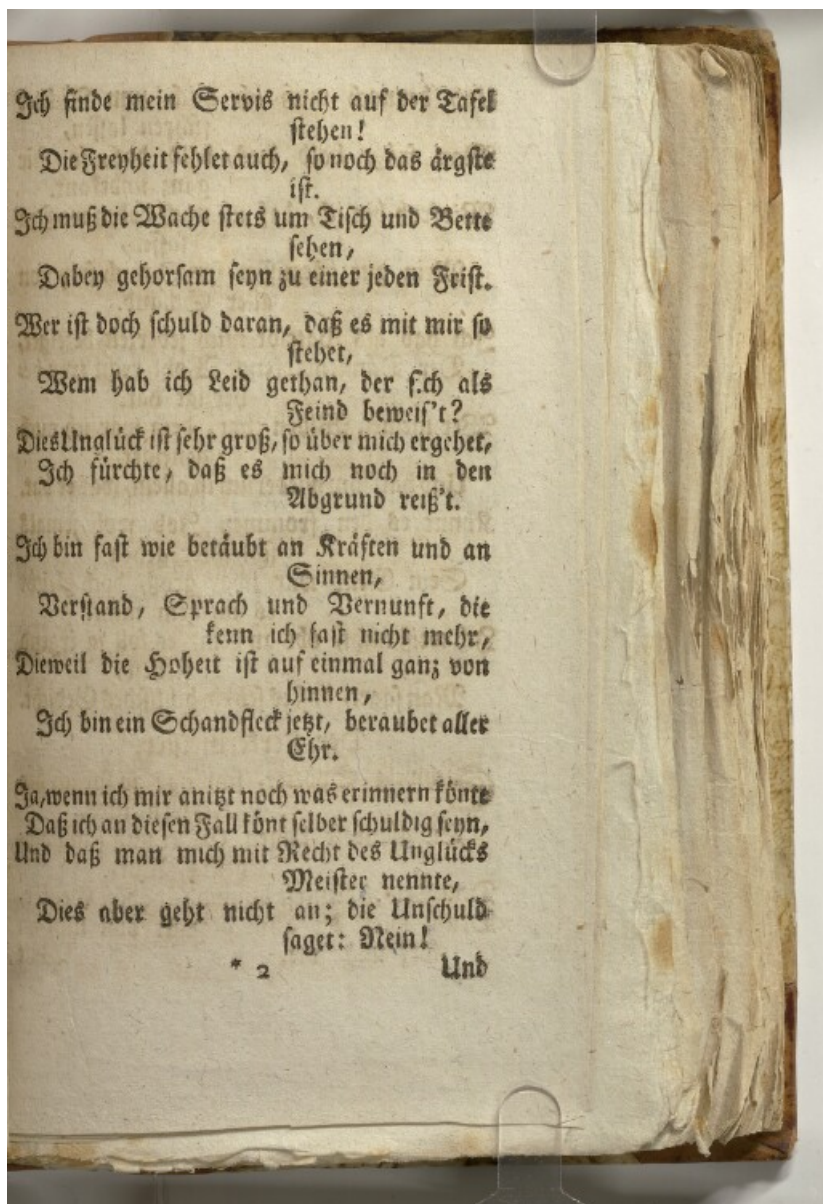 Ich finde mein Servis nicht auf der Tafel
stehen!
Die Freyheit fehlet auch, so noch das ärgste
ist.
Ich muß die Wache stets um Tisch und Bette
sehen,
Dabey gehorsam seyn zu einer jeden Frist.
Wer ist doch schuld daran, daß es mit mir so
stehet,
Wem hab ich Leid gethan, der s.ch als
Feind beweis't?
Dies Unglück ist sehr groß, so über mich ergehet,
Ich fürchte, daß es mich noch in den
Abgrund reiß't.
Ich bin fast wie betäubt an Kräften und an
Sinnen,
Verstand, Sprach und Vernunft, die
kenn ich fast nicht mehr,
Dieweil die Hoheit ist auf einmal ganz von
hinnen,
Ich bin ein Schandfleck jetzt, beraubet aller
Ehr.
Ja, wenn ich mir anitzt noch was erinnern könte
Daß ich an diesen Fall könt selber schuldig seyn,
Und daß man mich mit Recht des Unglücks
Meister nennte,
Dies aber geht nicht an; die Unschuld
saget: Nein!
* 2 Und